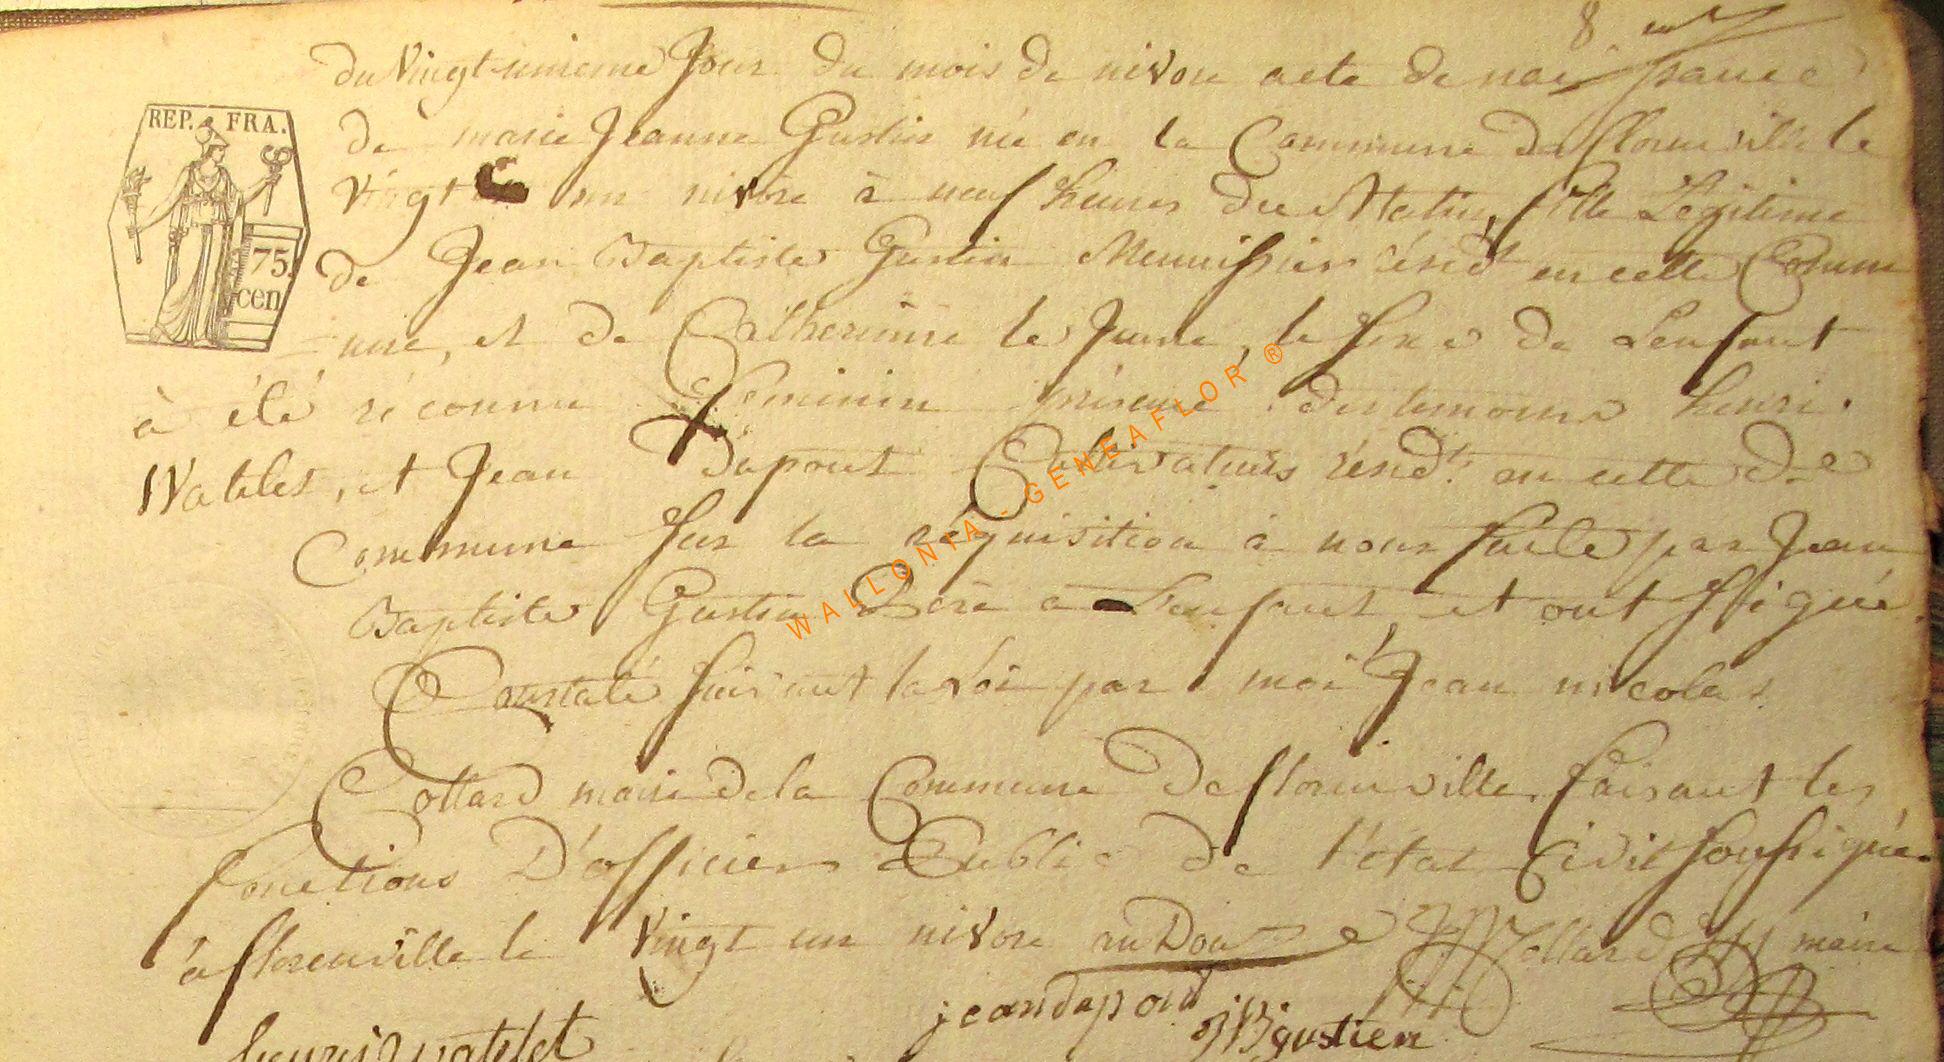 8
du Vingt-unieme Jour du mois de nivose acte de naissance
de marie Jeanne Gustin née en la Commune de florenville le
vingt un nivose à neuf heures du Matin, fille Légitime
de Jean Baptiste Gustin Menuissier résidt en cette Comm
REP. FRA.
75.
cen
=une, et de Catherinne le Jeune, le sexe de Lenfant
à été réconnu féminin présence des temoins henri
Watelet, et Jean dupont Cultivateurs résidts en cette de
Commune sur la réquisition à nous faite par Jean
Baptiste Gustin Père a Lenfant, et ont ssigné
Constaté suivant la Loi par moi Jean nicolas
Collard maire de la Commune de florenville, faisant les
fonctions D'officier Public de l'état Civil soussigné
à florenville le vingt un nivose an Douze Collard maire
jean dupont
JB gustien
henri watelet
WALLONIA - GENEAFLOR ®